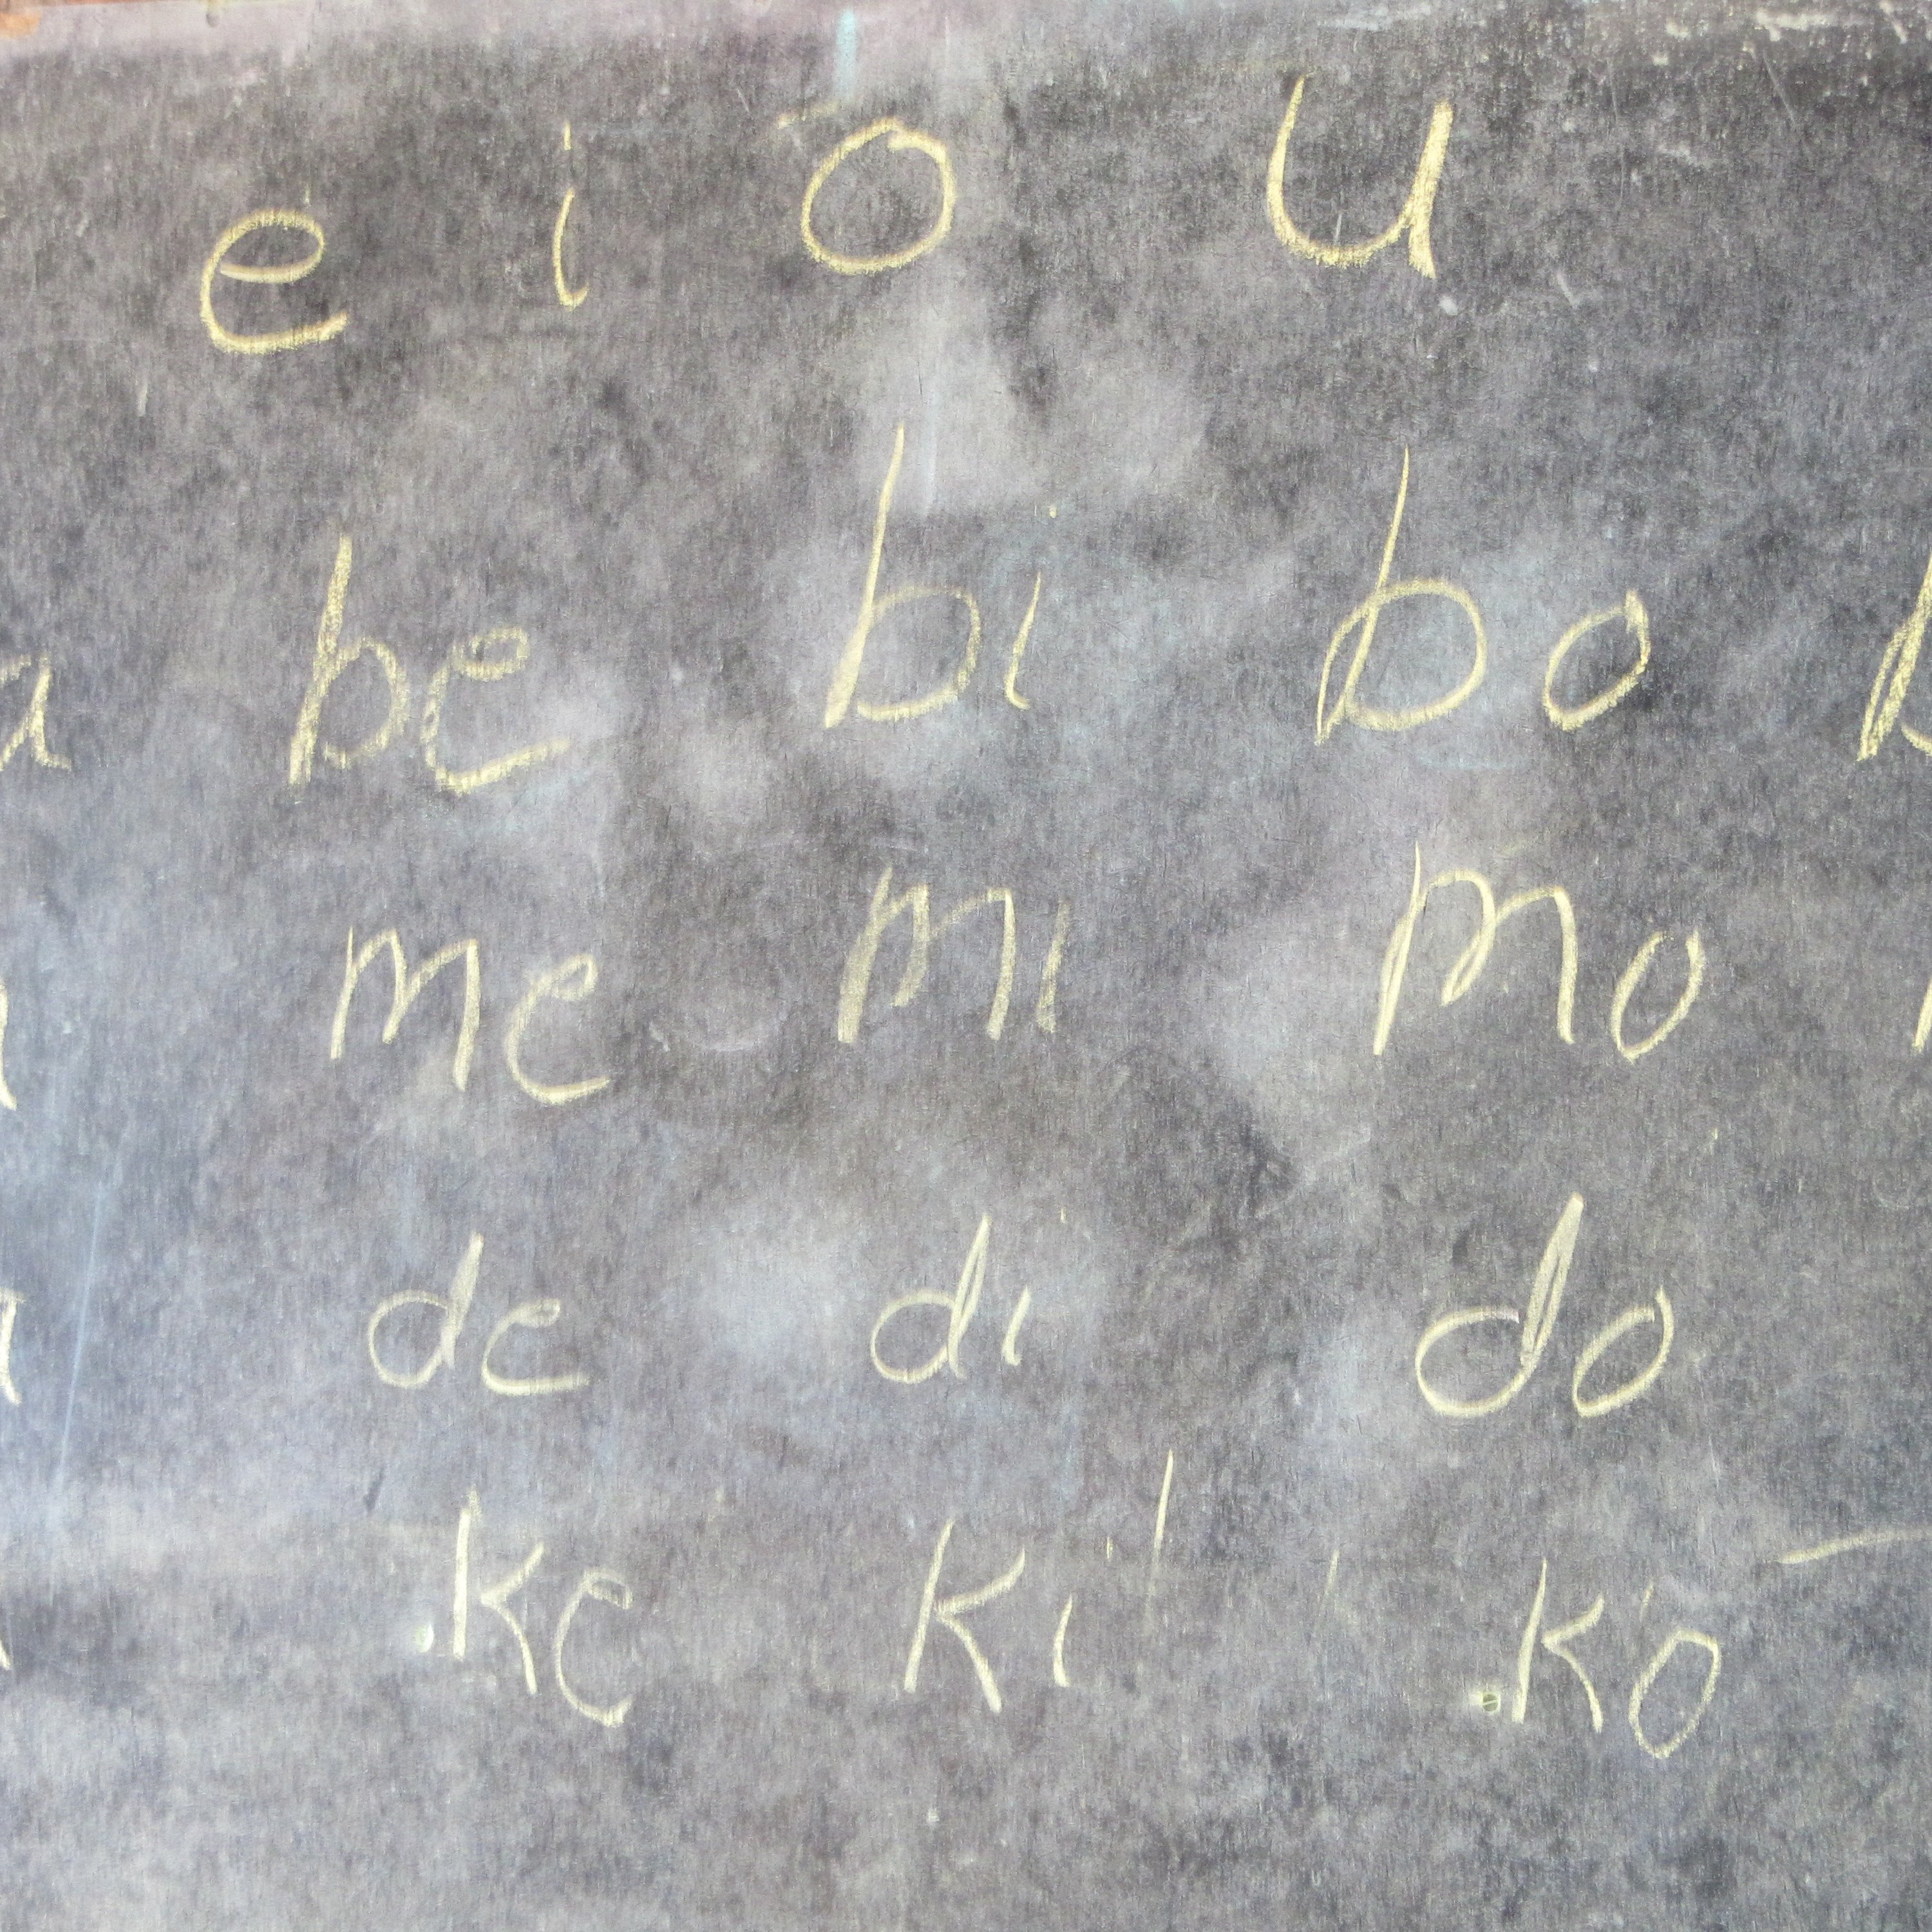 e i o u
a be bi bo b
me mi mo
a de di do
ke ki ko